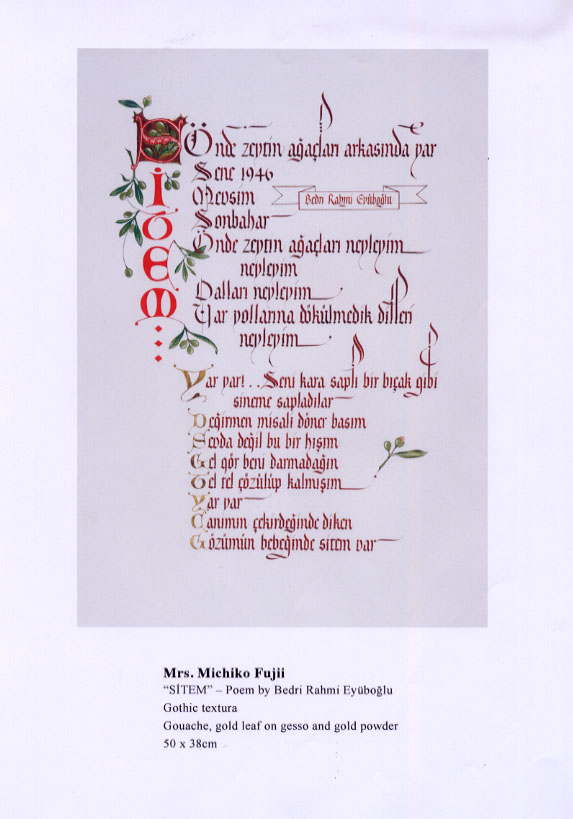 SİTEM...
Önde zeytin ağaçları arkasında yar
Sene 1946
Mevsim
Bedri Rahmi Eyüboğlu
Sonbahar
Önde zeytin ağaçları neyleyim
neyleyim
Dalları neyleyim
Yar yollarına dökülmedik dilleri
neyleyim
Yar yar!.. Seni kara saplı bir bıçak gibi
sineme sapladılar
Değirmen misali döner başım
Sevda değil bu bir hışım
Gel gör beni darmadağın
Tel tel çözülüp kalmışım
Yar yar
Canımın çekirdeğinde diken
Gözümün bebeğinde sitem var
Mrs. Michiko Fujii
“SİTEM” – Poem by Bedri Rahmi Eyüboğlu
Gothic textura
Gouache, gold leaf on gesso and gold powder
50 x 38cm